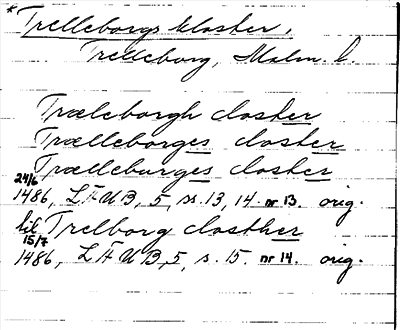 * Trelleborgs kloster.
Trelleborg, Malm. l.
Træleborgh closter
Trælleborges closter
Trælleburges closter
24/6 1486, LÄUB, 5, ss. 13, 14. nr 13. orig.
til Trelborg closther
15/7 1486, LÄUB, 5, s. 15. nr 14. orig.